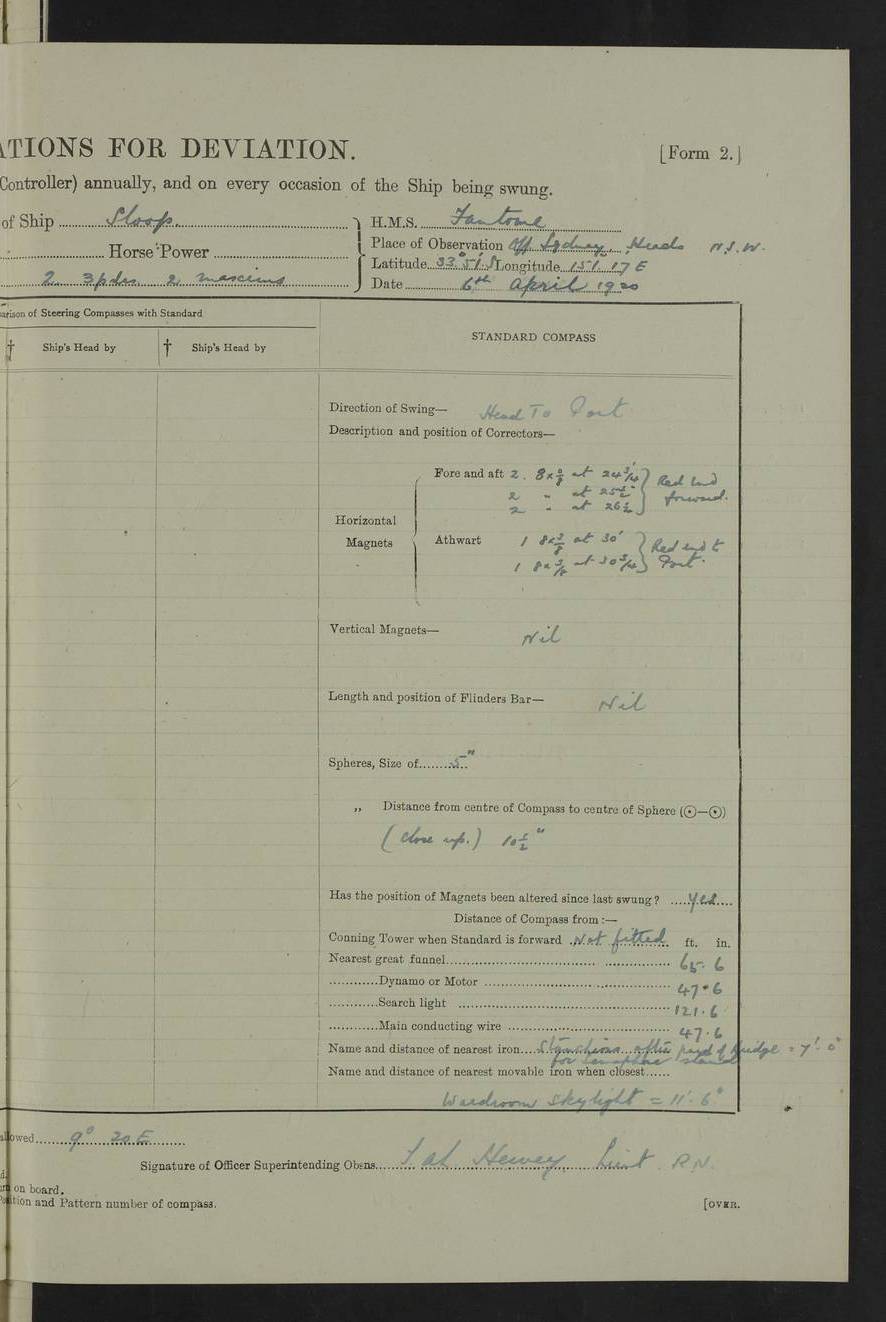 ATIONS FOR DEVIATION. [Form 2.]
Controller) annually, and on every occasion of the Ship being swung.
of Ship Sloop. H.M.S. Fantome
Horse Power Place of Observation Off Sydney Heads N.S.W.
Latitude 33° 51' S Longitude 151° 17 E
2 3pdrs 2 maxims Date 6th April 1920
arison of Steering Compasses with Standard
† Ship's Head by † Ship's Head by STANDARD COMPASS
Direction of Swing— Head To Port
Description and position of Correctors—
Fore and aft 2. 8 x 3/8 at 24 3/4 } Red end
2 " at 25 1/2" forward.
2 " at 26 1/2
Horizontal
Magnets
Athwart 1 8x3/8 at 30' } Red end to
1 8x3/8 at 30 3/4 } Port.
Vertical Magnets— Nil
Length and position of Flinders Bar— Nil
Spheres, Size of 5"
„ Distance from centre of Compass to centre of Sphere (⊙—⊙)
(close up.) 10 1/2"
Has the position of Magnets been altered since last swung? Yes
Distance of Compass from :—
Conning Tower when Standard is forward Not fitted ft. in.
Nearest great funnel 65. 6
Dynamo or Motor 47. 6
Search light 121. 6
Main conducting wire 47. 6
Name and distance of nearest iron Stanchions after part of bridge = 7'. 0"
for semaphore stand
Name and distance of nearest movable iron when closest
Wardroom skylight = 11'. 6"
allowed 9° 20 E.
Signature of Officer Superintending Obsns. Hewey Lieut R.N.
d.
on board.
Position and Pattern number of compass. [OVER.